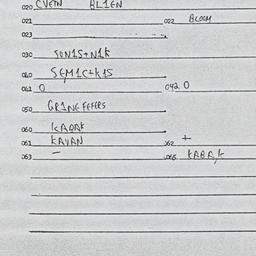 020 CVETN BL1EN
021 022 BLOOM
023
030 SON1S+N1K
040 SEM1C+K1S
041 0 042 0
050 GR1NEFEFERS
060 KAQAK
061 KAVAN 062 +
063 - 065 KABA,K